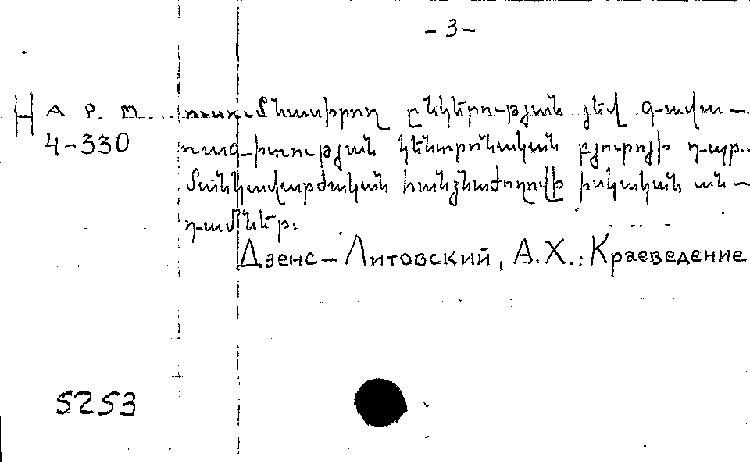 - 3 -
Н А Р. М. ուսումնասիրող ընկերության յեվ գավա-
4-330 ռագիտության կենտրոնական բյուրոյի դպր.
մանկավարժական հանձնաժողովի իսկական ան-
դամներ:
Дзенс-Литовский, А.Х.: Краеведение
5253